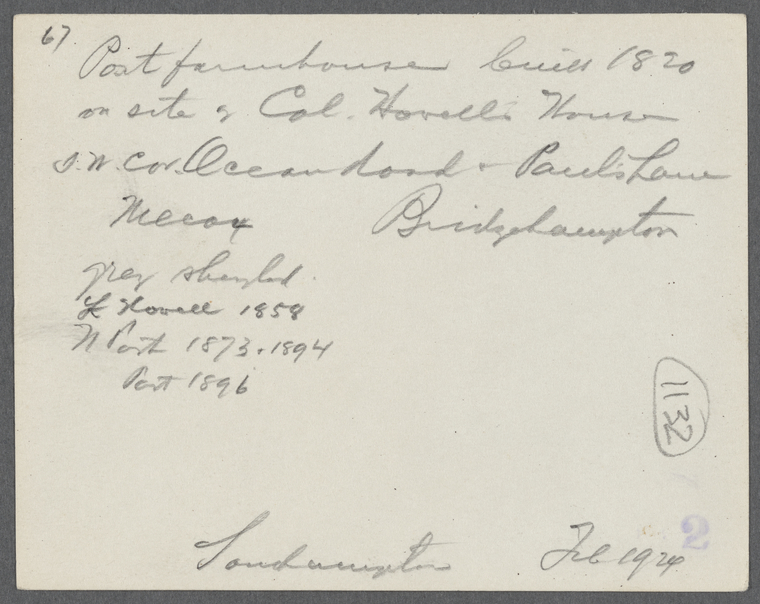 67
Post farmhouse built 1820
on site of Col. Howell's House
S.W. cor. Ocean Road & Paul's Lane
Mecox Bridgehampton
grey shingled.
L Howell 1858
N Post 1873 + 1894
Post 1896
1132
Southampton Feb 1924
2